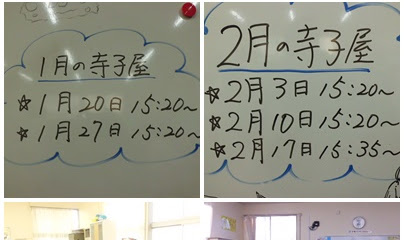 1月の寺子屋
☆1月20日 15:20~
☆1月27日 15:20~
2月の寺子屋
☆2月3日 15:20~
☆2月10日 15:20~
☆2月17日 15:35~